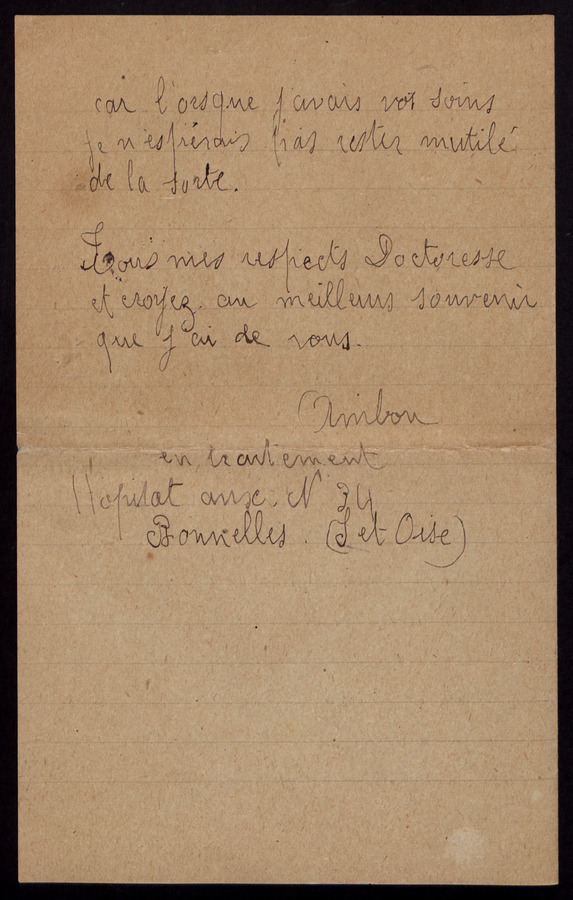 car l'orsque j'avais vos soins
je n'espérais pas rester mutilé
de la sorte.
mes respects Doctoresse
et croyez au meilleurs souvenir
que j'ai de vous.
Ambou
en traitement
Hopital aux. N 34
Bonnelles. (S et Oise)